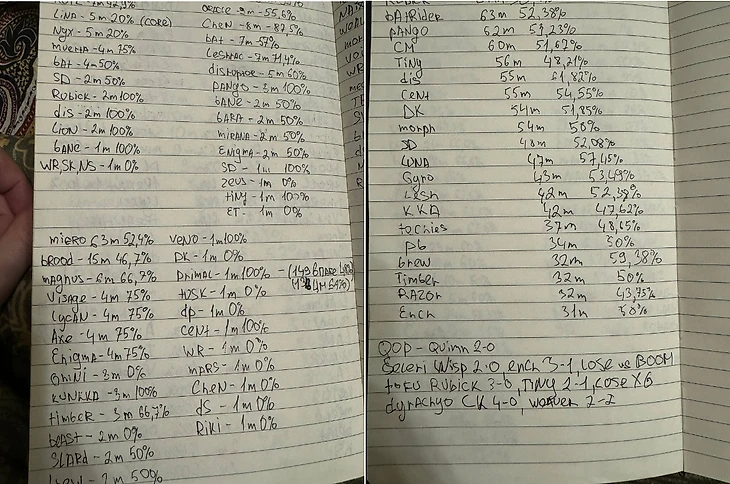 Lina - 5m 20% (core)
Nyx - 5m 20%
muerta - 4m 75%
bAt - 4m 50%
SD - 2m 50%
Rubick - 2m 100%
dis - 2m 100%
Lion - 2m 100%
bane - 1m 100%
WR,SK,NS - 1m 0%
Chen - 8m - 87,5%
bAt - 7m - 57%
Leshrac - 7m 71,4%
disruptor - 5m 60%
PANGO - 3m 100%
bANE - 2m 50%
bARA - 2m 50%
mirana - 2m 50%
Enigma - 2m 50%
SD - 1m 100%
zeus - 1m 0%
tiny - 1m 100%
ET - 1m 0%
miero 63m 52,4%
brood - 15m 46,7%
magnus - 6m 66,7%
Visage - 4m 75%
Lycan - 4m 75%
Axe - 4m 75%
Enigma - 4m 75%
Omni - 3m 0%
KUNKKA - 3m 100%
timber - 3m 66,7%
beast - 2m 0%
SLARd - 2m 50%
veno - 1m 100%
DK - 1m 0%
PRIMAL - 1m 100%
tusk - 1m 0%
dp - 1m 0%
Cent - 1m 100%
WR - 1m 0%
mars - 1m 0%
Chen - 1m 0%
dS - 1m 0%
Riki - 1m 0%
bAtRider 63m 52,38%
pango 62m 53,23%
CM 60m 51,67%
Tiny 56m 48,21%
dis 55m 61,82%
Cent 55m 54,55%
DK 54m 51,85%
morph 54m 50%
SD 48m 52,08%
LUNA 47m 57,45%
Gyro 43m 53,49%
Lesh 42m 52,38%
KKA 42m 47,62%
techies 37m 48,65%
pb 34m 50%
brew 32m 59,38%
Timber 32m 50%
RAZOR 32m 43,75%
Ench 31m
QOP - Quinn 2-0
Seleri Wisp 2-0, ench 3-1, LOSE vs BOOM
tofu Rubick 3-0, Tiny 2-1, LOSE XG
dyrachyo CK 4-0, weaver 2-2